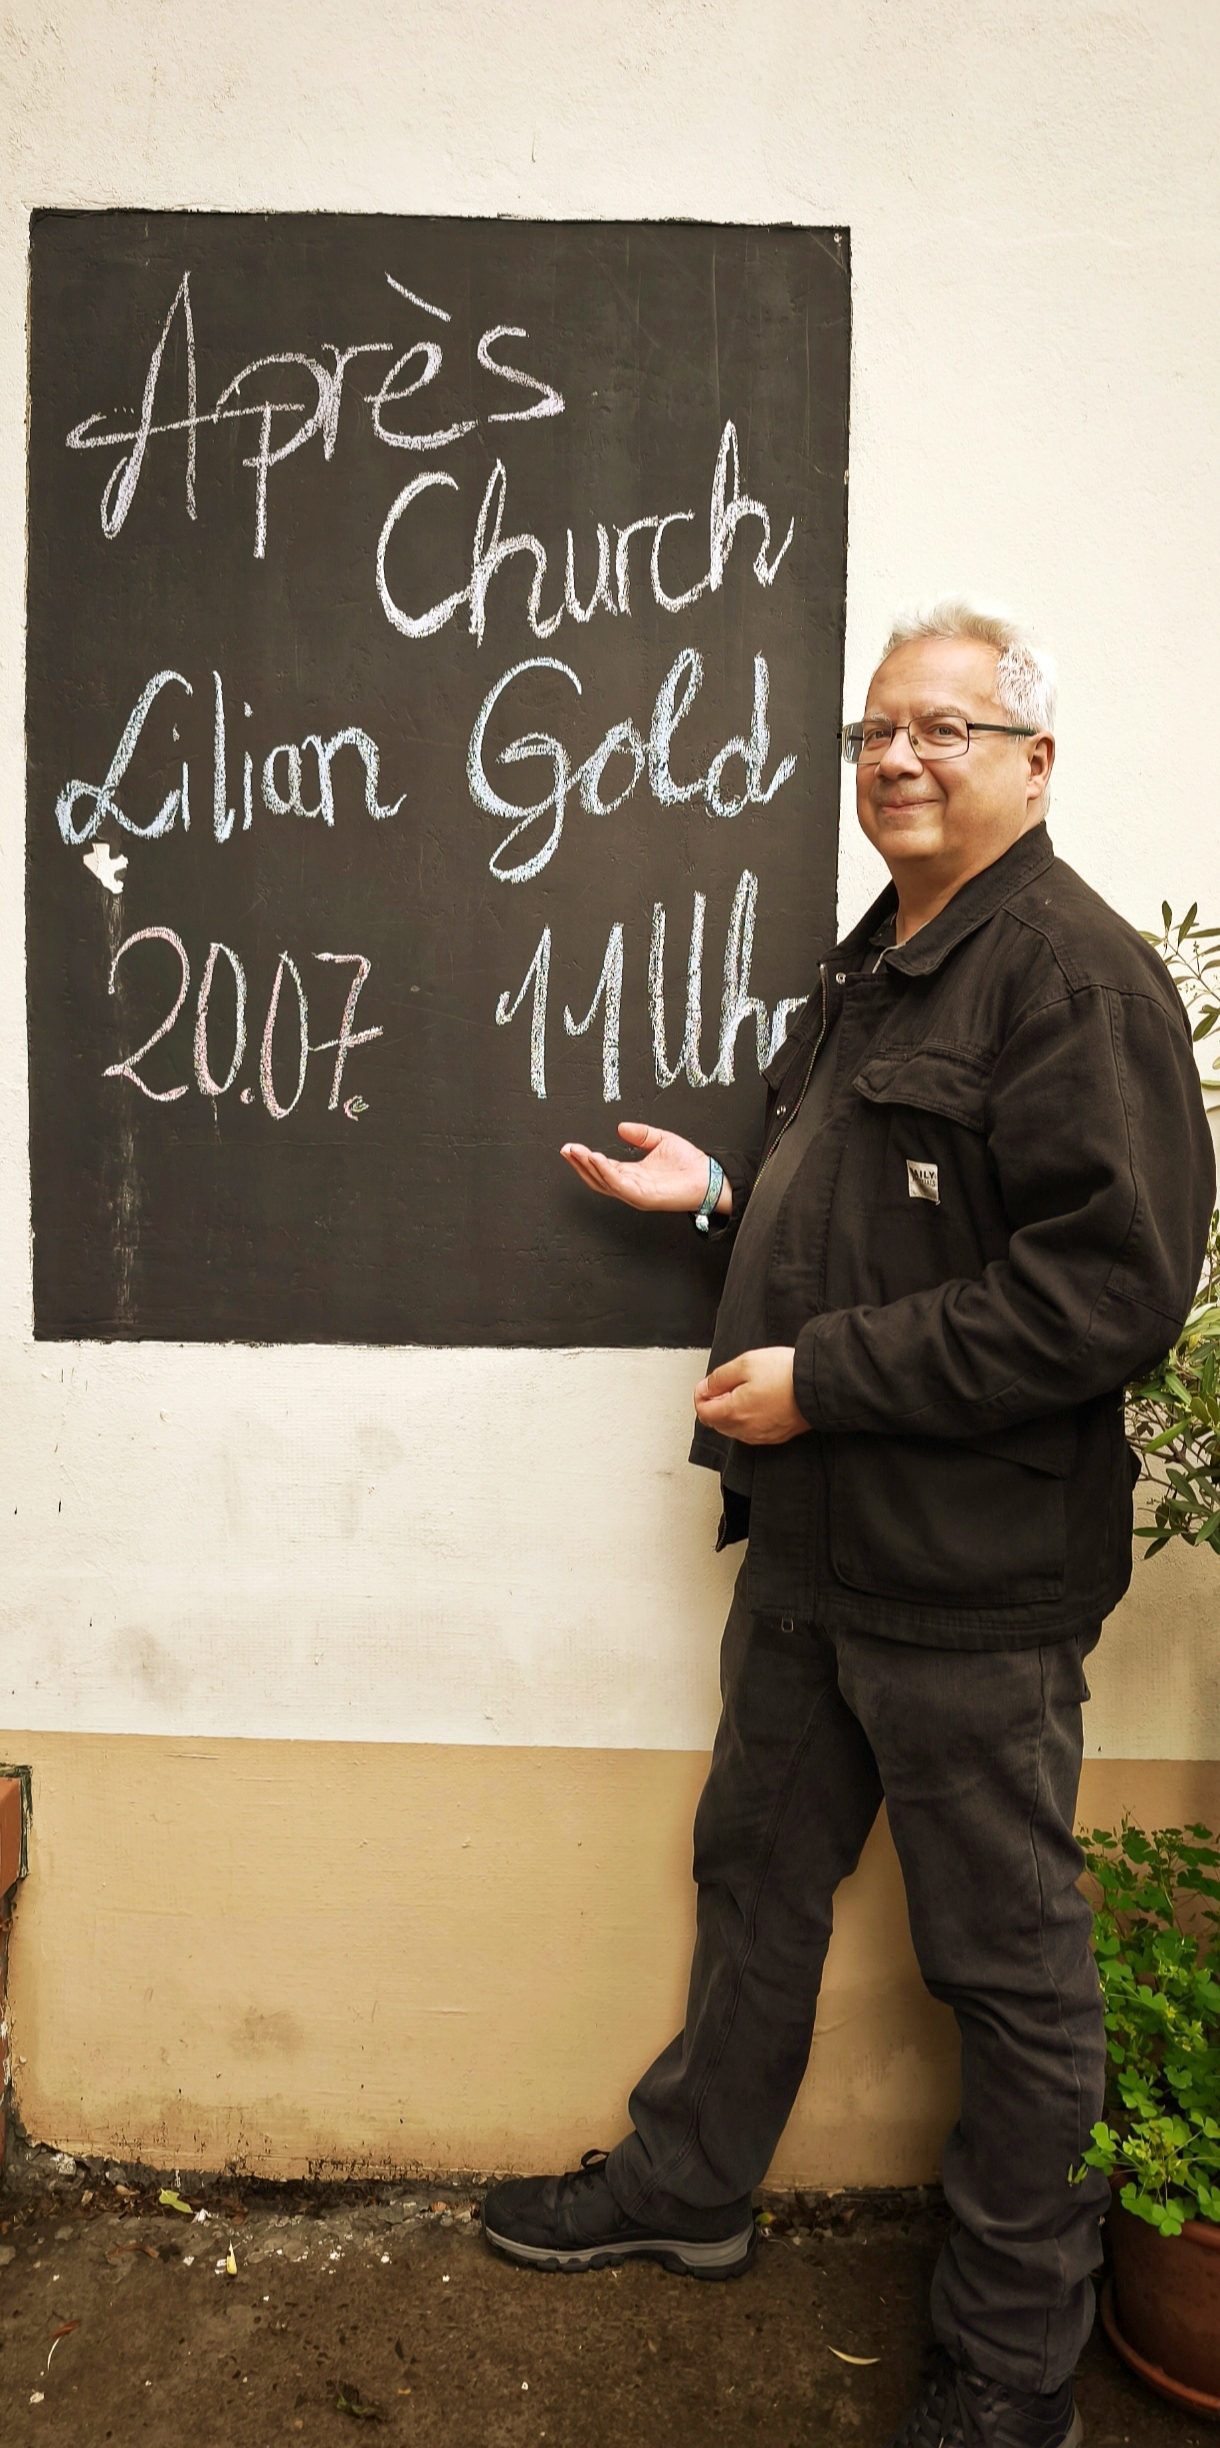 Après
Church
Lilian Gold
20.07. 11 Uhr